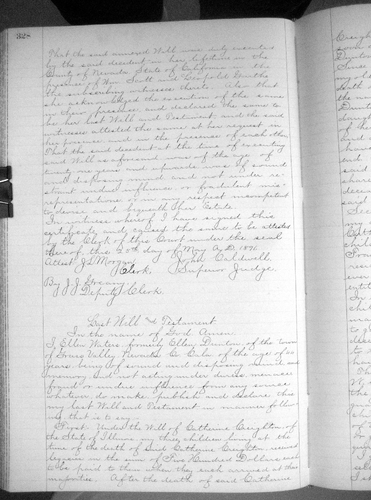 328
That the said annexed Will was duly executed
by the said decedent in her lifetime in the
County of Nevada State of California in the
presence of Wm. Scott and
the subscribing witnesses thereto. Also that
she acknowledged the execution of the same
in their presence and declared the same to
be her last Will and Testament, and the said
witnesses attested the same at her request in
her presence and in the presence of each other
That the said decedent at the time of executing
said Will as aforesaid was of the age of
years and upwards was of sound
and disposing mind and not under re-
straint undue influence or fraudulent mis-
representations or in any respect incompetent
to devise and bequeath Her Estate.
In witness whereof I have signed this
certificate and caused the same to be attested
by the Clerk of this Court under the seal
thereof this day of May A.D. 1891
Attest J. L. Morgan John Caldwell
Clerk. Superior Judge.
By J. J.
Deputy Clerk.
Last Will & Testament.
In the name of God. Amen.
I, Ellen Waters formerly Ellen Denton, of the town
of Grass Valley Nevada Co Cala. of the age of
years being of sound and disposing mind and
memory and not acting under duress menace
fraud or undue influence from any source
whatever, do make publish and declare this
my last Will and Testament in manner follow
ing that is to say
First: Under the Will of Catherine Creighton of
the State of Illinois, my three children living at the
time of the death of said Catherine Creighton received
legacies in the sum of Five Hundred Dollars each
to be paid to them when they each arrived at their
majorities. After the death of said Catherine